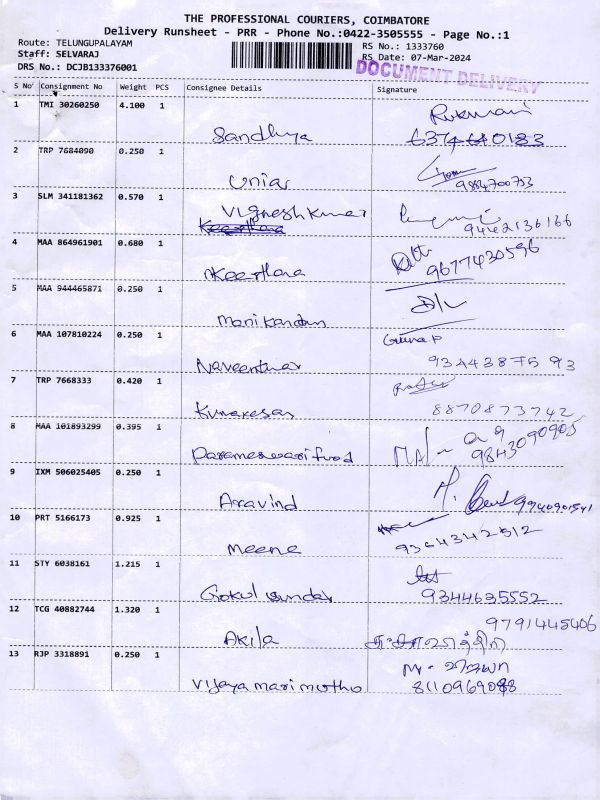 THE PROFESSIONAL COURIERS, COIMBATORE
Delivery Runsheet - PRR - Phone No.:0422-3505555 - Page No.:1
Route: TELUNGUPALAYAM
RS No.: 1333760
Staff: SELVARAJ
RS Date: 07-Mar-2024
DRS No.: DCJB133376001
DOCUMENT DELIVERY
S No Consignment No Weight PCS Consignee Details Signature
1 TMI 30260250 4.100 1
Rukmani
Sandhya 6374640183
2 TRP 7684090 0.250 1
9884700753
3 SLM 341181362 0.570 1
Vignesh kumar
Keerthana 9442136166
4 MAA 864961901 0.680 1
Keerthana 9677430596
5 MAA 944465871 0.250 1
Manikandan
6 MAA 107810224 0.250 1
Guna.P
9344387593
7 TRP 7668333 0.420 1
Kumaresan 8870873742
8 MAA 101893299 0.395 1
Parameswari food 9843090905
9 IXM 506025405 0.250 1
Aravind 9940901541
10 PRT 5166173 0.925 1
Meena 9364342512
11 STY 6038161 1.215 1
Gokul sundar 9344635552
12 TCG 40882744 1.320 1
9791445406
Akila
13 RJP 3318891 0.250 1
Vijaya mari muthu 8110969088